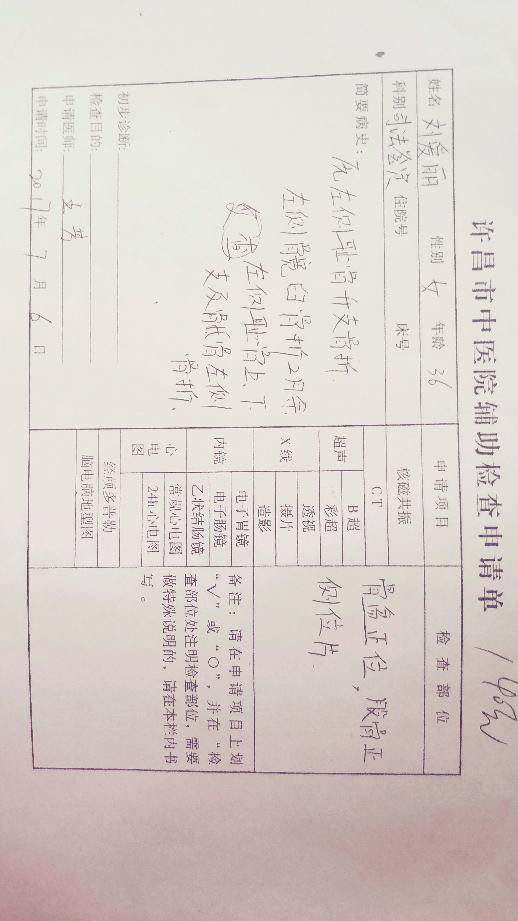 许昌市中医院辅助检查申请单
姓名 刘爱丽 性别 女 年龄 36
科别 司法鉴定 住院号 床号
简要病史:
左侧耻骨升支骨折
左侧髋臼骨折2月余
左侧耻骨上、下
支及骶骨左侧
骨折、
初步诊断:
检查目的:
申请医师:
申请时间: 2017年 7 月 6 日
申请项目 检查部位
核磁共振
CT
超声 B超
彩超
X线 透视
摄片
造影
内镜 电子胃镜
电子肠镜
乙状结肠镜
心电图 常规心电图
24h心电图
经颅多普勒
脑电脑地型图
骨盆正位,
侧位片.
备注:请在申请项目上划
“√”或“○”,并在“检
查部位处注明检查部位,需要
做特殊说明的,请在本栏内书
写。